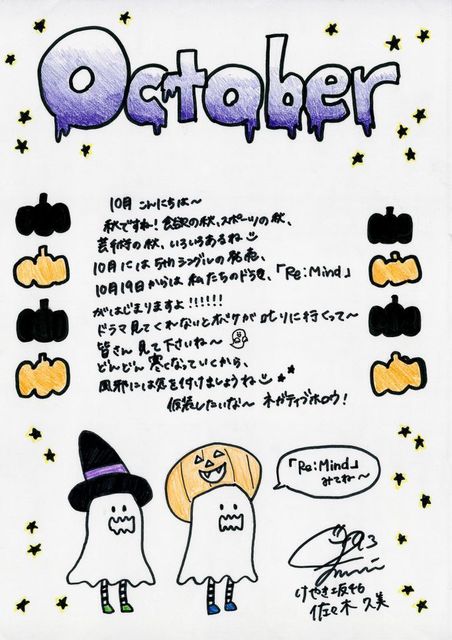 October
10月 こんにちは〜
秋ですね！食欲の秋、スポーツの秋、
芸術の秋、いろいろあるね
10月には5thシングルの発売、
10月19日からは私たちのドラマ、「Re:Mind」
がはじまりますよ!!!!!!
ドラマ見てくれないとオバケが叱りに行くって〜
皆さん見て下さいね〜
どんどん寒くなっていくから、
風邪には気を付けましょうね
仮装したいな〜 ネガティブホロウ！
「Re:Mind」
みてね〜
けやき坂46
佐々木 久美